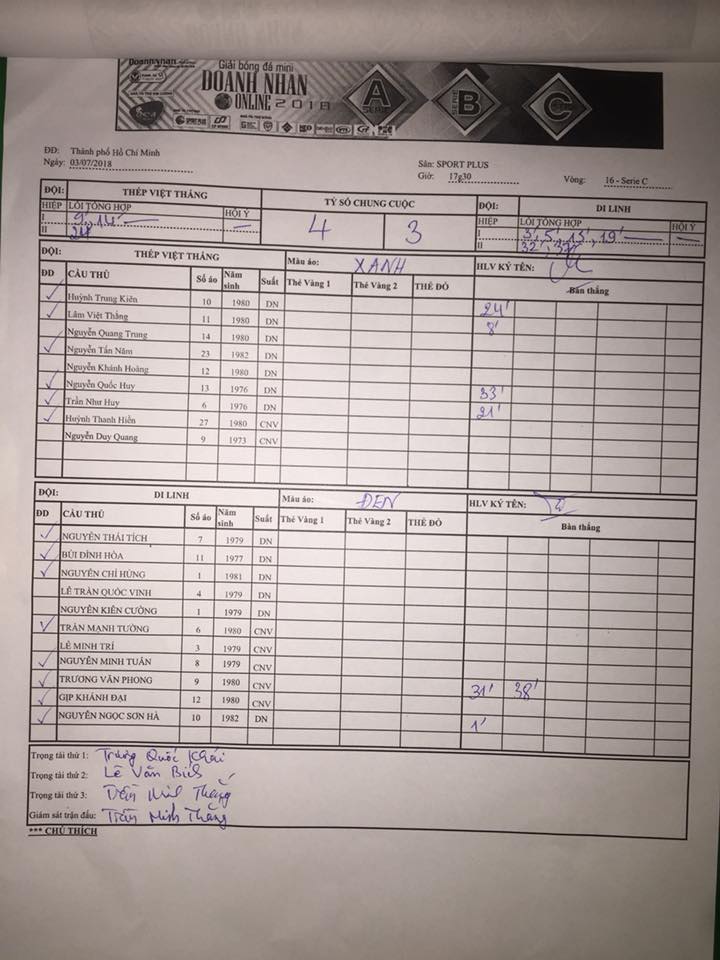 Doanh Nhân
Giải bóng đá mini
DOANH NHÂN
ONLINE 2018
SERIE A
SERIE B
SERIE C
SPORT PLUS
ĐĐ: Thành phố Hồ Chí Minh
Ngày: 03/07/2018
Sân: SPORT PLUS
Giờ: 17g30 Vòng: 16 - Serie C
ĐỘI: THÉP VIỆT THẮNG TỶ SỐ CHUNG CUỘC ĐỘI: DI LINH
HIỆP LỖI TỔNG HỢP HỘI Ý 4 3 HIỆP LỖI TỔNG HỢP HỘI Ý
I 9', 14' — — I 3', 5', 13', 19' — —
II II 32', 37'
ĐỘI: THÉP VIỆT THẮNG Màu áo: XANH HLV KÝ TÊN:
ĐD CẦU THỦ Số áo Năm sinh Suất Thẻ Vàng 1 Thẻ Vàng 2 THẺ ĐỎ Bàn thắng
✓ Huỳnh Trung Kiên 10 1980 DN 24'
✓ Lâm Việt Thắng 11 1980 DN 8'
Nguyễn Quang Trung 14 1980 DN
✓ Nguyễn Tấn Năm 23 1982 DN
Nguyễn Khánh Hoàng 12 1980 DN
✓ Nguyễn Quốc Huy 13 1976 DN 33'
✓ Trần Như Huy 6 1976 DN 21'
✓ Huỳnh Thanh Hiền 27 1980 CNV
Nguyễn Duy Quang 9 1973 CNV
ĐỘI: DI LINH Màu áo: ĐEN HLV KÝ TÊN:
ĐD CẦU THỦ Số áo Năm sinh Suất Thẻ Vàng 1 Thẻ Vàng 2 THẺ ĐỎ Bàn thắng
✓ NGUYỄN THÁI TÍCH 7 1979 DN
✓ BÙI ĐÌNH HÒA 11 1977 DN
✓ NGUYỄN CHÍ HÙNG 1 1981 DN
LÊ TRẦN QUỐC VINH 4 1979 DN
NGUYỄN KIÊN CƯỜNG 1 1979 DN
✓ TRẦN MẠNH TƯỜNG 6 1980 CNV
LÊ MINH TRÍ 3 1979 DN
✓ NGUYỄN MINH TUẤN 8 1979 CNV
✓ TRƯƠNG VĂN PHONG 9 1980 CNV 31' 38'
✓ GỊP KHÁNH ĐẠI 12 1980 CNV
✓ NGUYỄN NGỌC SƠN HÀ 10 1982 DN 1'
Trọng tài thứ 1: Trương Quốc Khái
Trọng tài thứ 2: Lê Văn
Trọng tài thứ 3: Thắng
Giám sát trận đấu: Trần Minh Thắng
*** CHÚ THÍCH